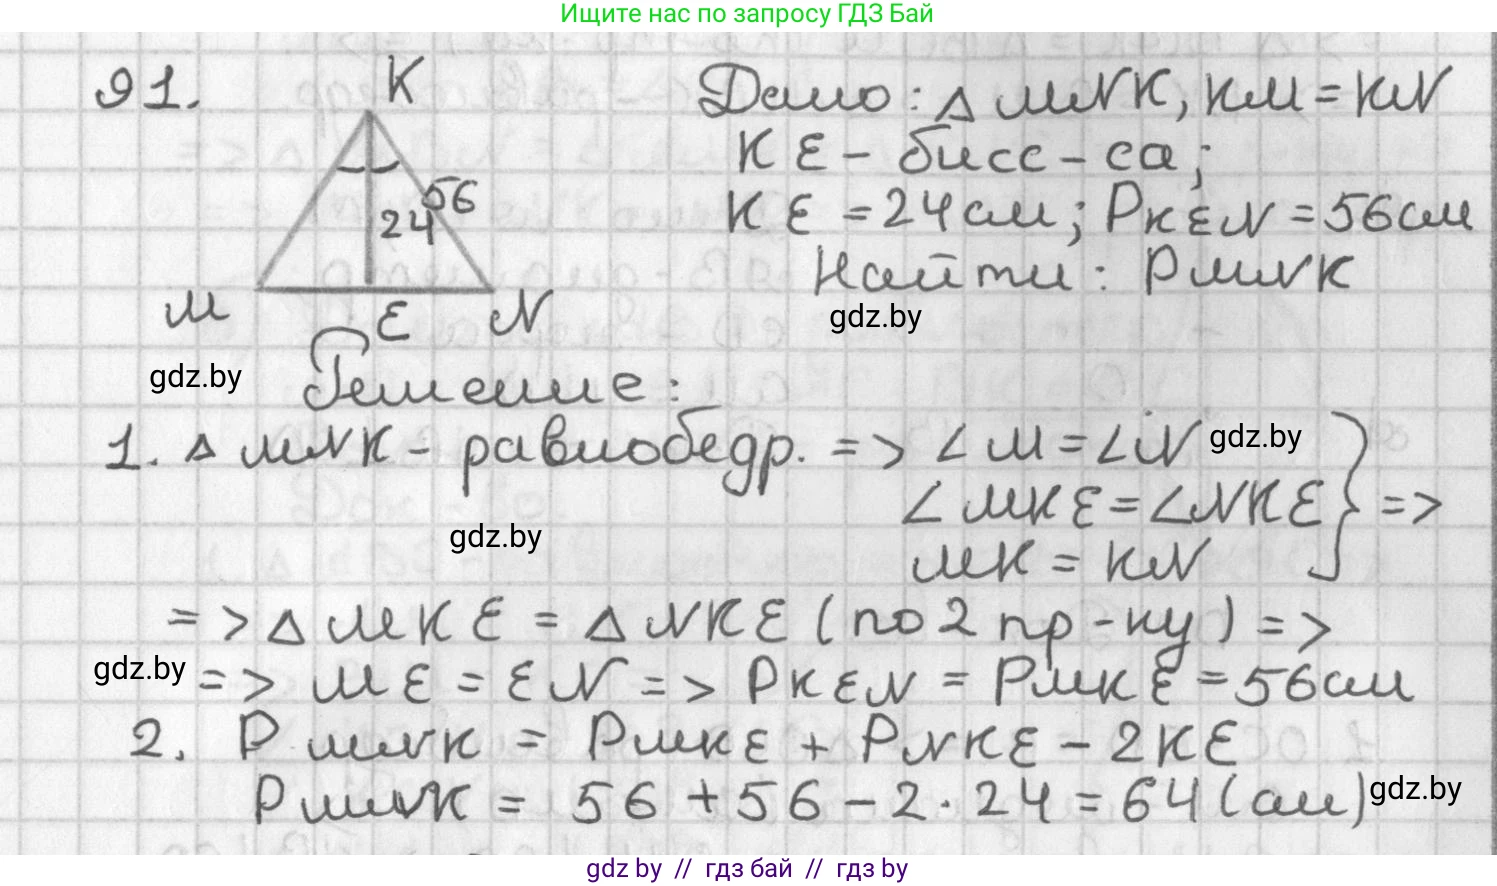 Ищите нас по запросу ГДЗ Бай
91.
K
Дано: △ MNK, KM = KN
KE - бисс-са;
56
24
KE = 24 см; PKEN = 56 см
Найти: PMNK
M
E
N
gdz.by
gdz.by
Решение:
1. △ MNK - равнобедр. => ∠M = ∠N
gdz.by
∠MKE = ∠NKE } =>
gdz.by
MK = KN
=> △ MKE = △ NKE (по 2 пр-ку) =>
gdz.by
=> ME = EN => PKEN = PMKE = 56 см
2. PMNK = PMKE + PNKE - 2KE
PMNK = 56 + 56 - 2·24 = 64 (см)
gdz.by
gdz by // гдз бай // гдз by